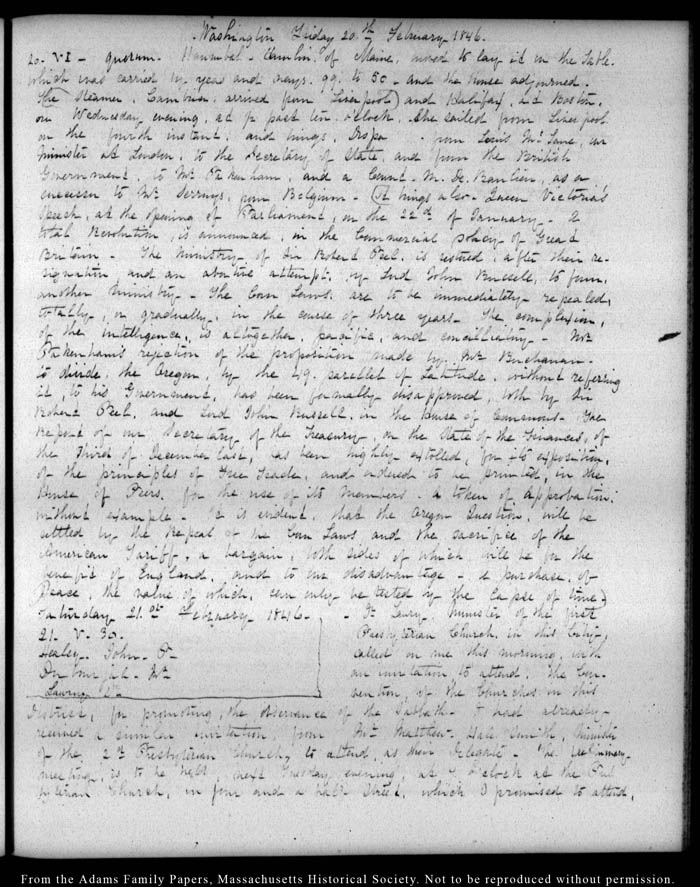 Washington Friday 20.th February 1846.
20. VI - quorum. Hannibal Hamlin of Maine, moved to lay it on the table.
which was carried by yeas and nays. 99. to 50 - and the House adjourned.
The Steamer, Cambria, arrived from Liverpool) and Halifax, at Boston,
on Wednesday evening, at past ten o'clock. She sailed from Liverpool
on the fourth instant; and brings, from Louis McLane, our
Minister at London, to the Secretary of State, and from the British
Government, to Mr Pakenham, and a Count - M. De. as a
successor to Mr Serruys, from Belgium - It brings also - Queen Victoria's
Speech, at the opening of Parliament, on the 22.d of January - A
total Revolution, is announced, in the Commercial policy of Great
Britain - The Ministry of Sir Robert Peel, is restored, after their re-
signation, and an abortive attempt, by Lord John Russell, to form,
another Ministry - The Corn Laws, are to be immediately repealed,
totally, or gradually, in the course of three years - The complexion,
of the intelligence, is altogether, pacific, and conciliatory - Mr
Pakenham's rejection of the proposition made by Mr Buchanan -
to divide, the Oregon, by the 49. parallel of Latitude, without referring
it, to his Government, has been formally disapproved, both by Sir
Robert Peel, and Lord John Russell, in the House of Commons - The
Report of our, Secretary of the Treasury, on the State of the Finances, of
the third of December last, has been highly extolled, for its exposition,
of the principles of Free Trade, and ordered to be printed, in the
House of Peers, for the use of its Members - a token of approbation,
without example - It is evident, that the Oregon Question, will be
settled by the Repeal of the Corn Laws and the sacrifice of the
American Tariff, a bargain, both sides of which will be for the
benefit of England, and to our disadvantage - a purchase, of
Peace, the value of which, can only be tested by the lapse of time.
Saturday 21.st February 1846.
21. V. 30.
Healey. John. P
Mr
Laurie Dr
- Dr Laurie, Minister of the first
Presbyterian Church, in this City,
called on me this morning, with
an invitation to attend, the Con-
vention, of the Churches in this
District, for promoting, the observance of the Sabbath - I had already
received a similar invitation, from Mr Matthew - Hale Smith, Minister
of the 2.d Presbyterian Church, to attend, as their Delegate - The preliminary
meeting, is to be held, next Tuesday evening, at 7 o'clock at the
Church, in four and a half Street, which I promised to attend.
From the Adams Family Papers, Massachusetts Historical Society. Not to be reproduced without permission.